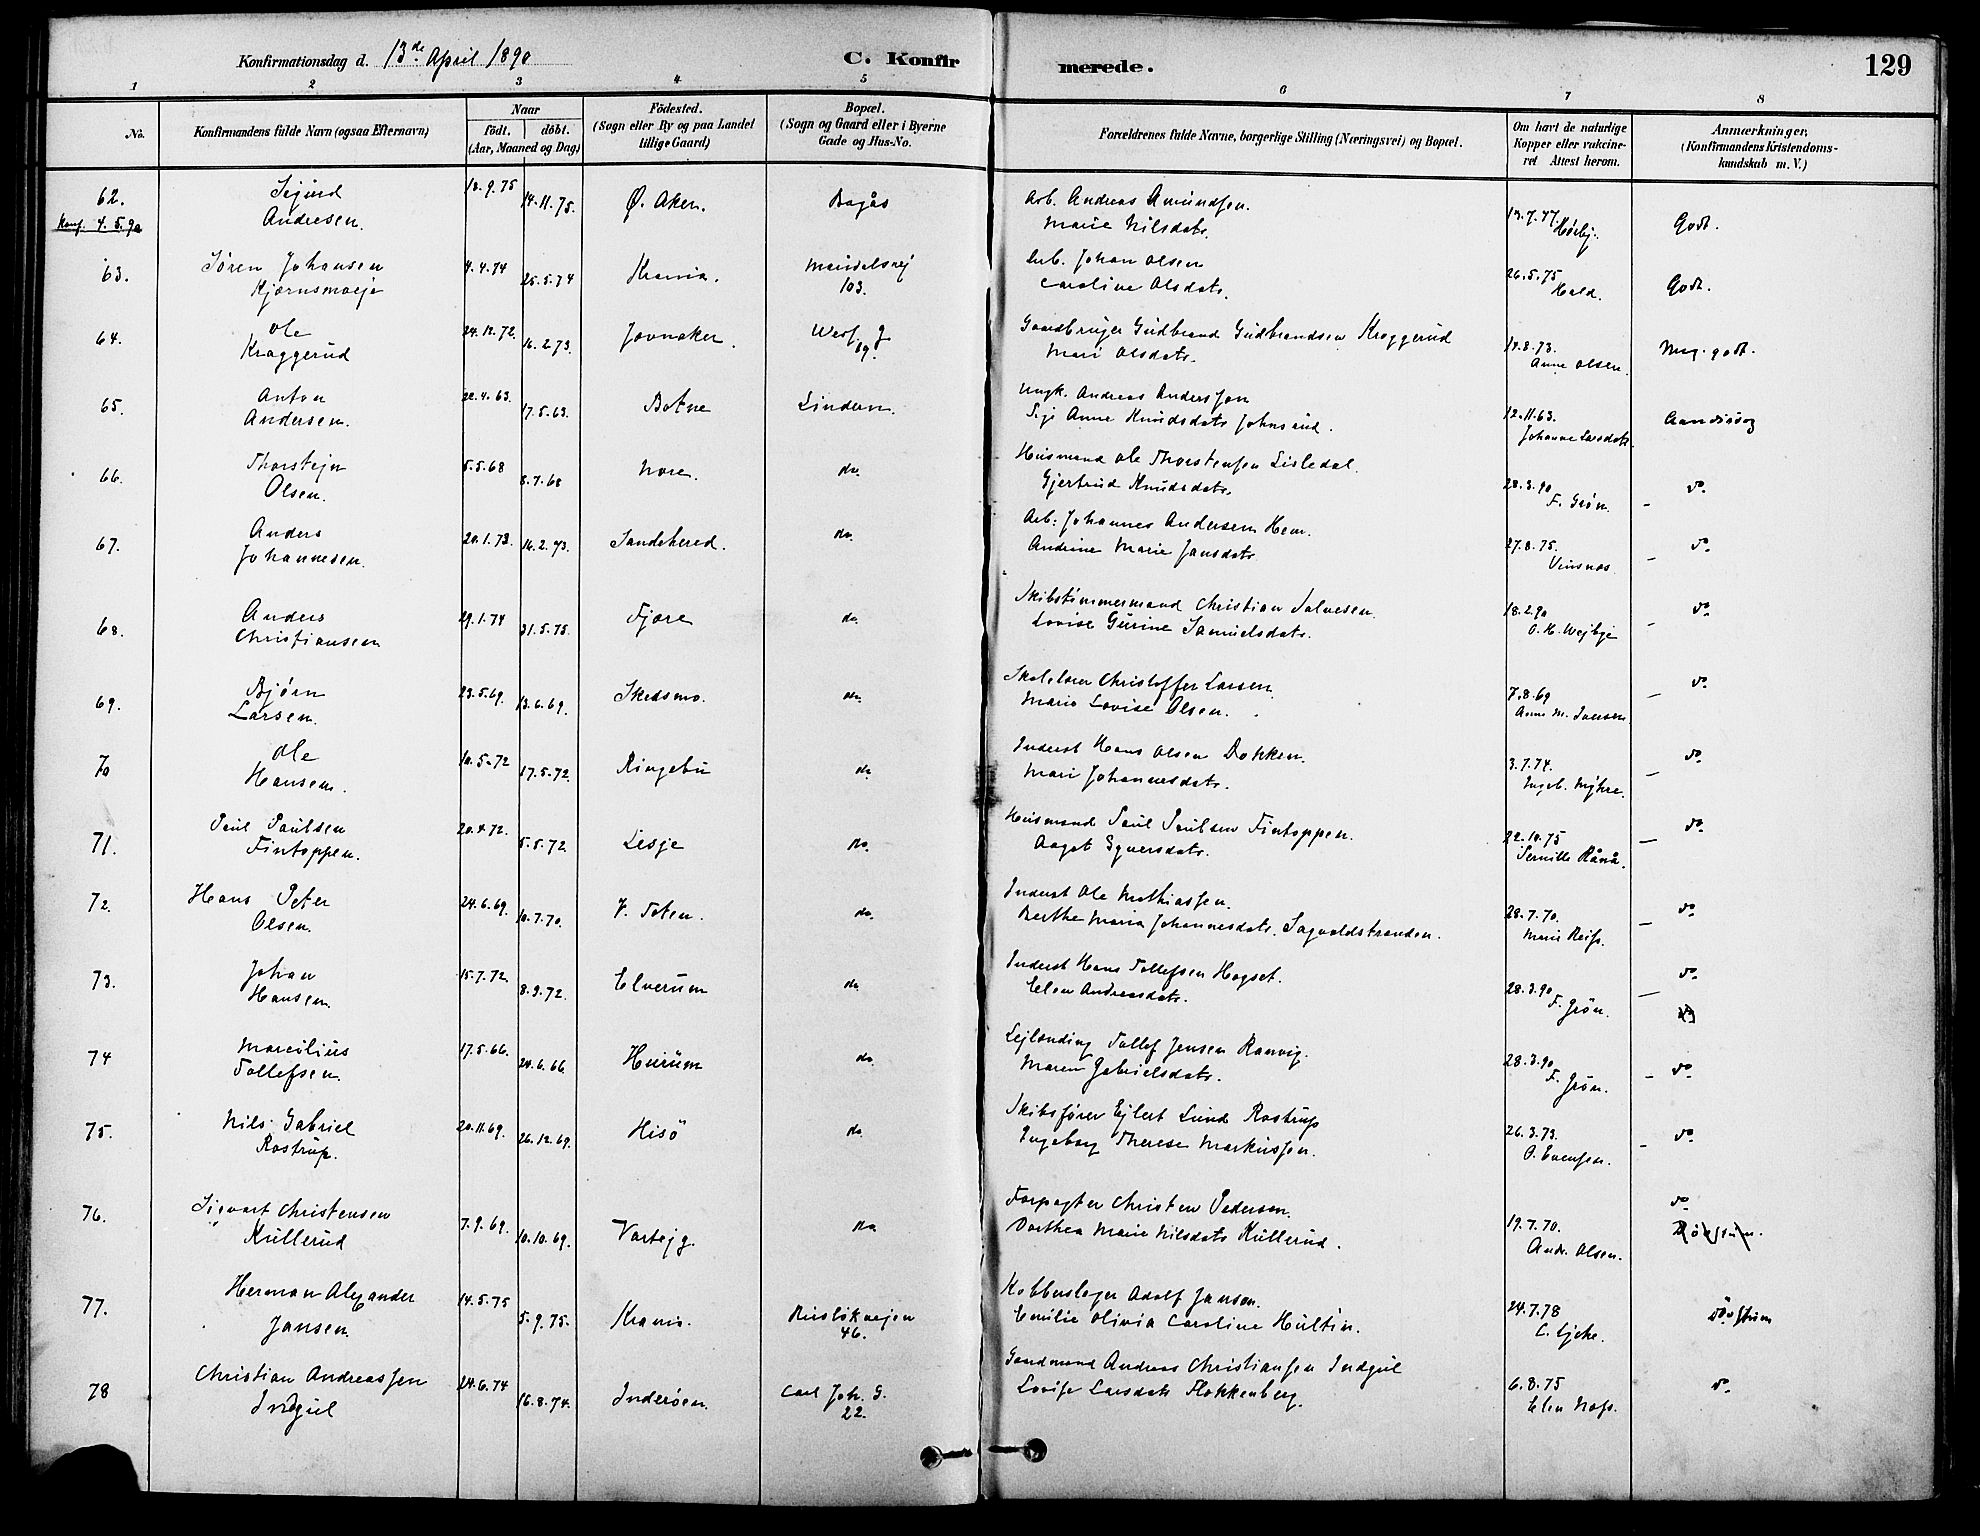 Konfirmationsdag d. 13de April 1890
C. Konfirmerede.
129
1 2 3 4 5 6 7 8
No.
Konfirmandens fulde Navn (ogsaa Efternavn)
Naar
født. døbt.
(Aar, Maaned og Dag)
Fødested.
(Sogn eller By og paa Landet
tillige Gaard)
Bopæl.
(Sogn og Gaard eller i Byerne
Gade og Hus-No.
Forældrenes fulde Navne, borgerlige Stilling (Næringsvei) og Bopæl.
Om havt de naturlige
Kopper eller vaksine-
ret Attest herom.
Anmærkninger,
(Konfirmandens Kristendoms-
kundskab m. V.)
62. Sejurd 18.9.75 14.11.75. Ø. Aker. Bagås Arb. Andreas Amundsen. 19.7.77. Godt.
Konf. 4.5.90 Andresen. Marie Nilsdatr. Hørbj.
63. Søren Johansen 4.4.74 25.5.74 Krania. Maridalsvej Arb. Johan Olsen 26.5.75 Godt.
Kjærnsmoeje 103. Caroline Olsdatr. Hald.
64. Ole 24.12.72. 16.2.73. Jevnaker. Wesf. g. Gaardbruger Gudbrand Gudbrandsen Kraggerud 19.8.73. Mg. godt.
Kraggerud 19. Mari Olsdatr. Anne Olsen.
65. Anton 22.4.63. 17.5.63. Botne Lindern. Ungk. Andreas Anderssen 12.11.63.
Andersen. Pige Anne Knudsdatr Johnsrud. Johanne Larsdatr.
66. Thorstejn 5.5.68 8.7.68 Nore. do. Husmand Ole Thorstensen Lisledal. 28.3.90 – do.
Olsen. Gjertrud Knudsdatr. F. Grøn.
67. Anders 20.1.73. 16.2.73. Sandehered. do. Arb: Johannes Andersen Hem. 27.8.75. – do.
Johannesen. Andrine Marie Jansdatr. Vinsnæs.
68. Anders 29.1.74 31.5.75. Fjære do. Skibstømmermand Christian Salvesen. 18.2.90 – do.
Christiansen Lovise Gurine Samuelsdatr. O. H. Wejbye
69. Bjørn 23.5.69. 13.6.69. Skedsmo. do. Skolelærer Christoffer Larsen. 7.8.69 – do.
Larsen. Marie Lovise Olsen. Anne M. Iversen
70 Ole 10.5.72 17.5.72. Ringebu do Inderst Hans Olsen Dokken. 3.7.74. – do.
Hansen. Mari Johannesdatr. Ingeb. Myhre.
71. Paul Paulsen 20.4.72. 5.5.72. Lesje do. Husmand Paul Paulsen Fintoppen. 22.10.75 – do.
Fintoppen. Aagot Syversdatr. Pernille Rånå.
72. Hans Peter 24.6.69. 10.7.70. V. Toten. do. Inderst Ole Mathiassen. 28.7.70. – do.
Olsen. Berthe Maria Johannesdatr. Sagvoldstranden. Marie Reiss.
73. Johan 15.7.72. 8.9.72. Elverum do. Inderst Hans Tollefsen Hagset. 28.3.90 – do.
Hansen. Elen Andreasdatr. F. Grøn.
74 Marcilius 17.5.66. 24.6.66. Hurum do. Lejlænding Tollef Jensen Ranvig. 28.3.90 – do.
Tollefsen. Maren Gabrielsdatr. F. Grøn.
75. Nils Gabriel 20.11.69. 26.12.69. Hisö do. Skibsfører Ejlert Lund Rostrup 26.3.73. – do.
Rostrup. Ingeborg Therese Markussen. O. Evensen.
76. Sigvart Christensen 7.9.69. 10.10.69. Vartejg. do. Forpagter Christen Pedersen. 19.7.70. do
Kullerud Dorthea Marie Nilsdatr Kullerud. Andr. Olsen.
77. Herman Alexander 14.5.75 5.9.75. Krania. Rusløkvejen Kobberslager Adolf Jansen. 24.7.78 Døvstum
Jansen. 46. Emilie Olivia Caroline Hultin. C. Gjche.
78 Christian Andreassen 24.6.74 16.8.74. Inderøen. Carl Joh. G. Gaardmand Andreas Christiansen Indgul 6.8.75 do.
Indgul 22. Lovise Larsdatr Flokkenberg. Elen Næss.